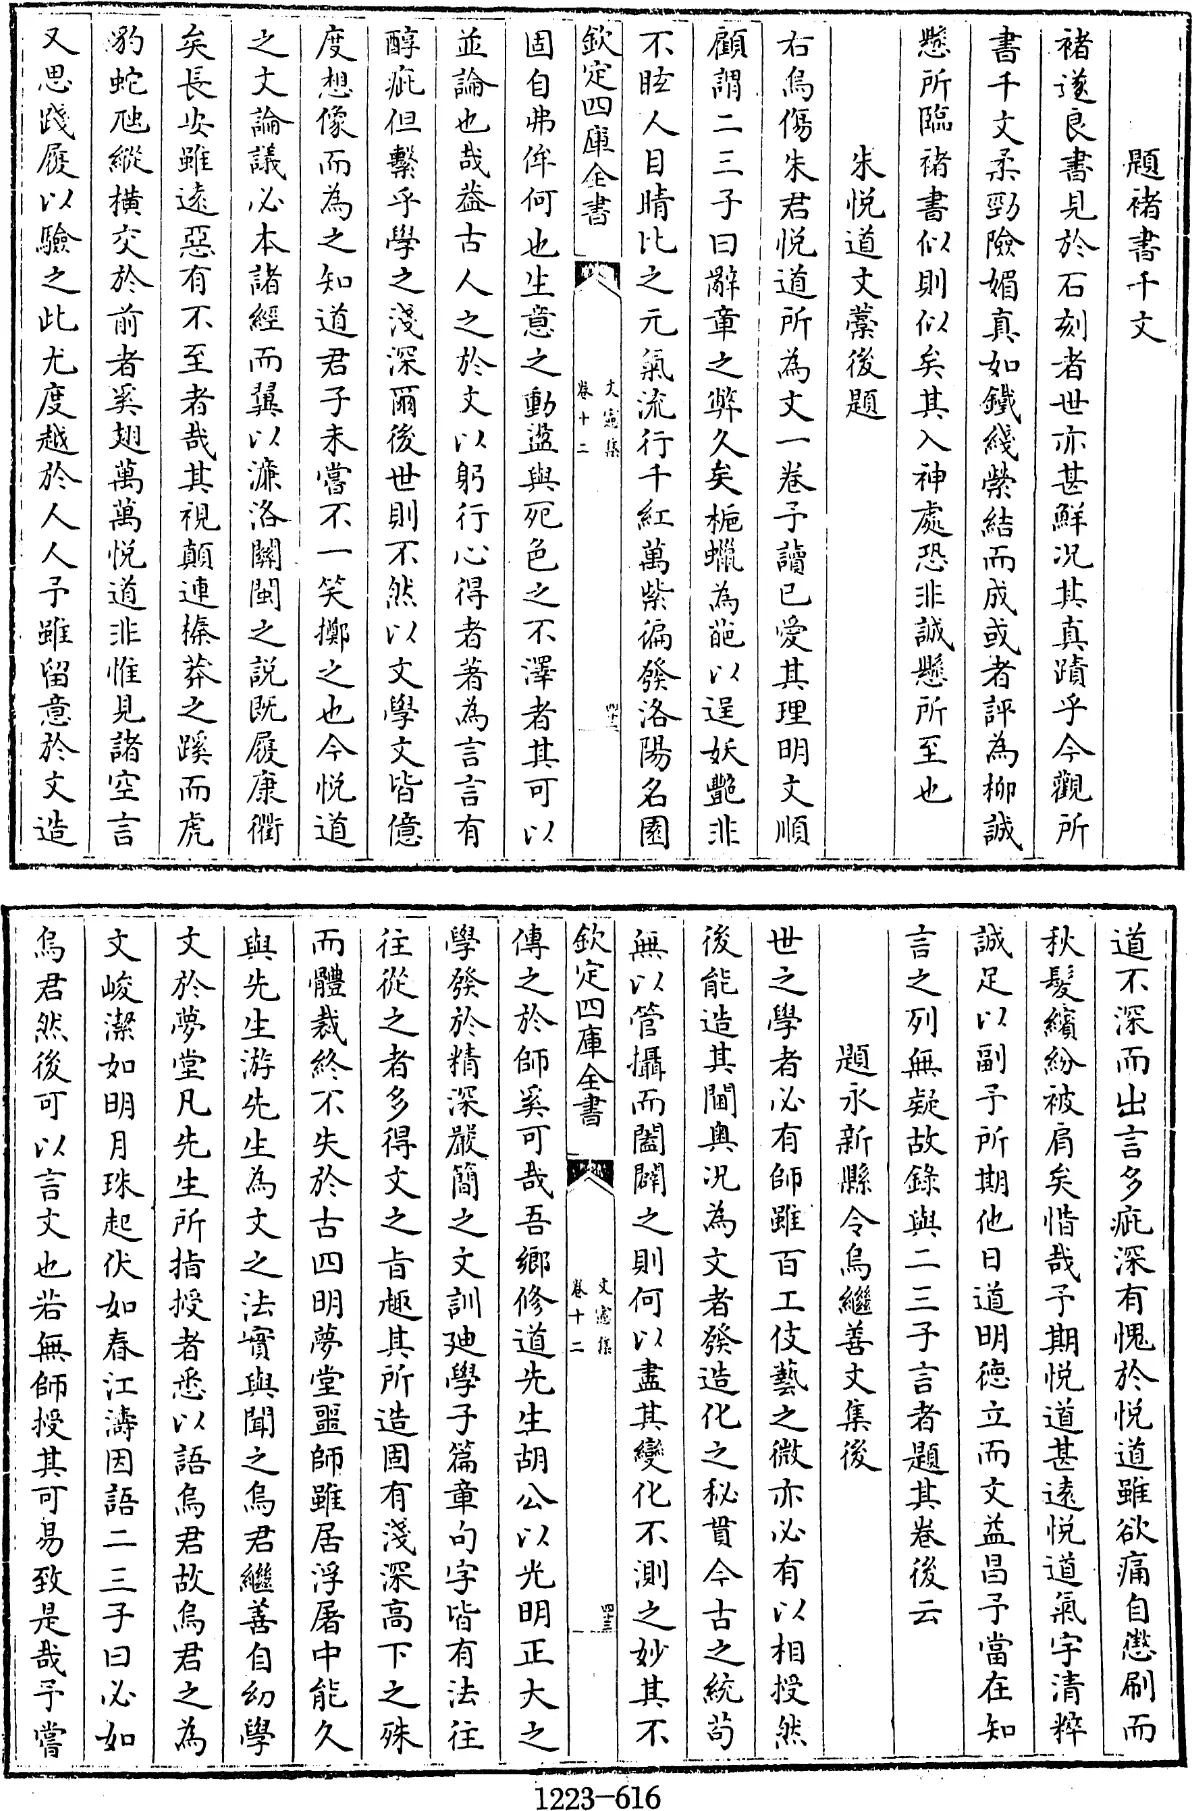 題褚書千文
褚遂良書見於石刻者世亦甚鮮况其真蹟乎今觀所
書千文柔勁險媚真如鐵綫縈結而成或者評為柳誠
懸所臨褚書似則似矣其入神處恐非誠懸所至也
朱悅道文藁後題
右烏傷朱君悅道所為文一卷予讀已愛其理明文順
顧謂二三子曰辭章之弊久矣梔蠟為葩以逞妖豔非
不眩人目睛比之元氣流行千紅萬紫徧發洛陽名園
欽定四庫全書
文憲集
卷十二
四十二
固自弗侔何也生意之動盪與死色之不澤者其可以
並論也哉葢古人之於文以躬行心得者著為言言有
醇疵但繫乎學之淺深爾後世則不然以文學文皆億
度想像而為之知道君子未嘗不一笑擲之也今悅道
之文論議必本諸經而翼以濂洛關閩之説既履康衢
矣長安雖遠惡有不至者哉其視顛連榛莽之蹊而虎
豹蛇虺縱橫交於前者奚翅萬萬悅道非惟見諸空言
又思踐履以驗之此尤度越於人人予雖留意於文造
道不深而出言多疵深有愧於悅道雖欲痛自懲刷而
秋髮繽紛被肩矣惜哉予期悅道甚遠悅道氣宇清粹
誠足以副予所期他日道明德立而文益昌予當在知
言之列無疑故錄與二三子言者題其卷後云
題永新縣令烏繼善文集後
世之學者必有師雖百工伎藝之微亦必有以相授然
後能造其閫奥况為文者發造化之秘貫今古之統苟
無以管攝而闔闢之則何以盡其變化不測之妙其不
欽定四庫全書
文憲集
卷十二
四十三
傳之於師奚可哉吾鄉修道先生胡公以光明正大之
學發於精深嚴簡之文訓廸學子篇章句字皆有法往
往從之者多得文之旨趣其所造固有淺深高下之殊
而體裁終不失於古四明夢堂噩師雖居浮屠中能久
與先生游先生為文之法實與聞之烏君繼善自幼學
文於夢堂凡先生所指授者悉以語烏君故烏君之為
文峻潔如明月珠起伏如春江濤因語二三子曰必如
烏君然後可以言文也若無師授其可易致是哉予嘗
1223-616